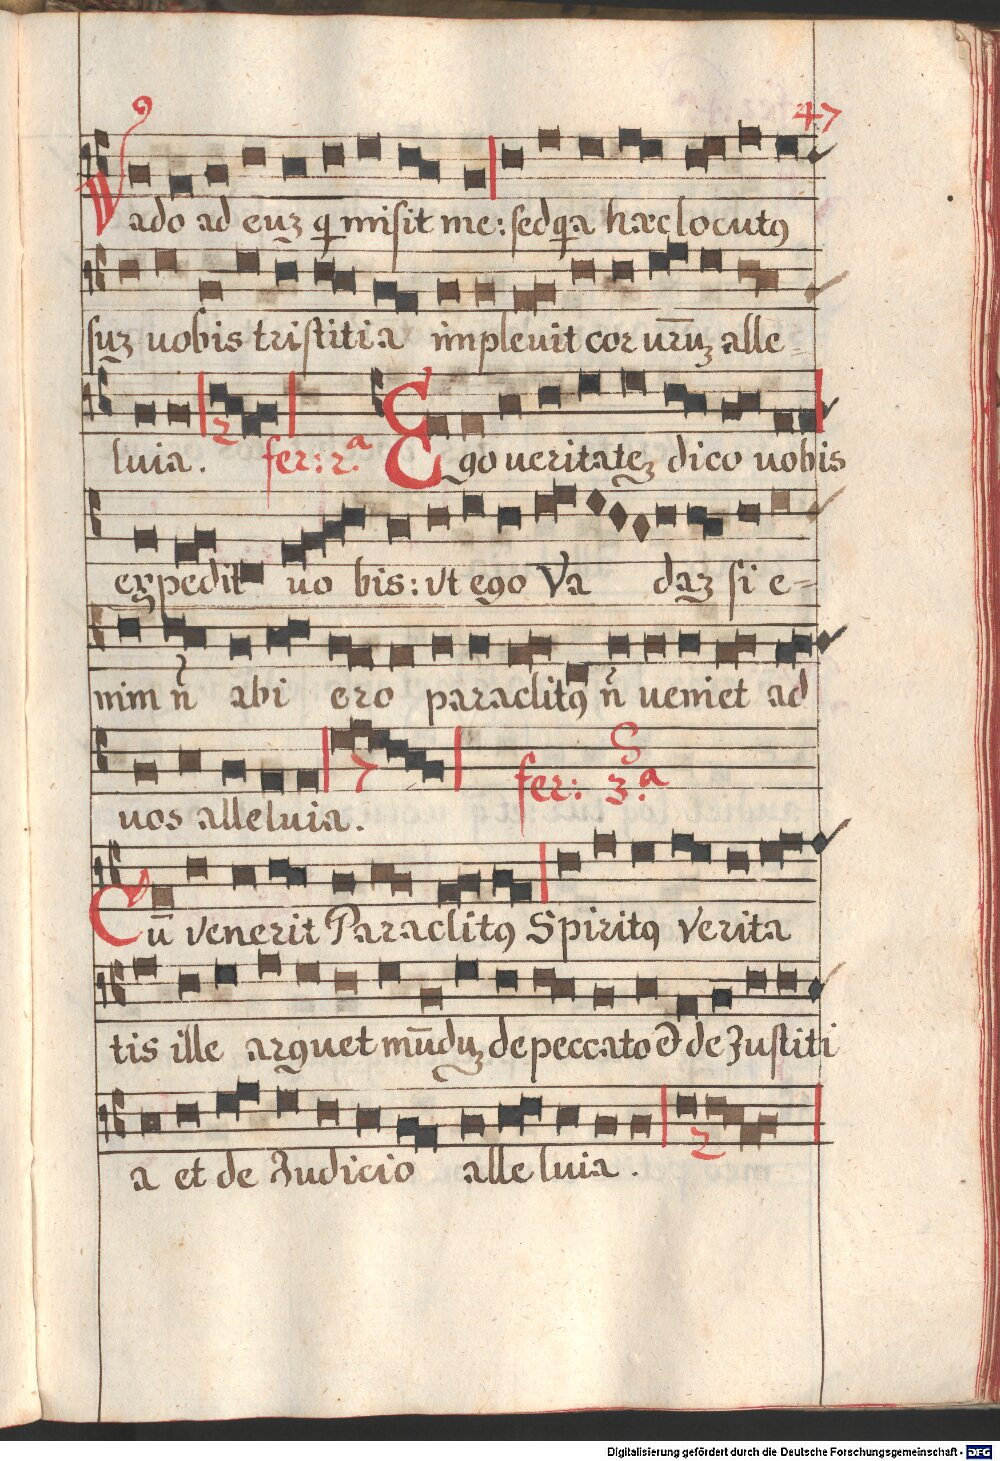 47
Vado ad euʒ q misit me: sed qa hæc locutꝯ
suʒ uobis tristitia impleuit cor ur̄uʒ alle-
luia. 2 fer: 2.ª Ego ueritateʒ dico uobis
expedit uo bis: vt ego Va daʒ si e-
nim n̄ abi ero paraclitꝯ n̄ ueniet ad
uos alleluia. 7 fer: 3.ª
Cū venerit Paraclitꝯ Spiritꝯ verita
tis ille arguet mūduʒ de peccato & de Justiti
a et de Judicio alleluia. 2
Digitalisierung gefördert durch die Deutsche Forschungsgemeinschaft - DFG